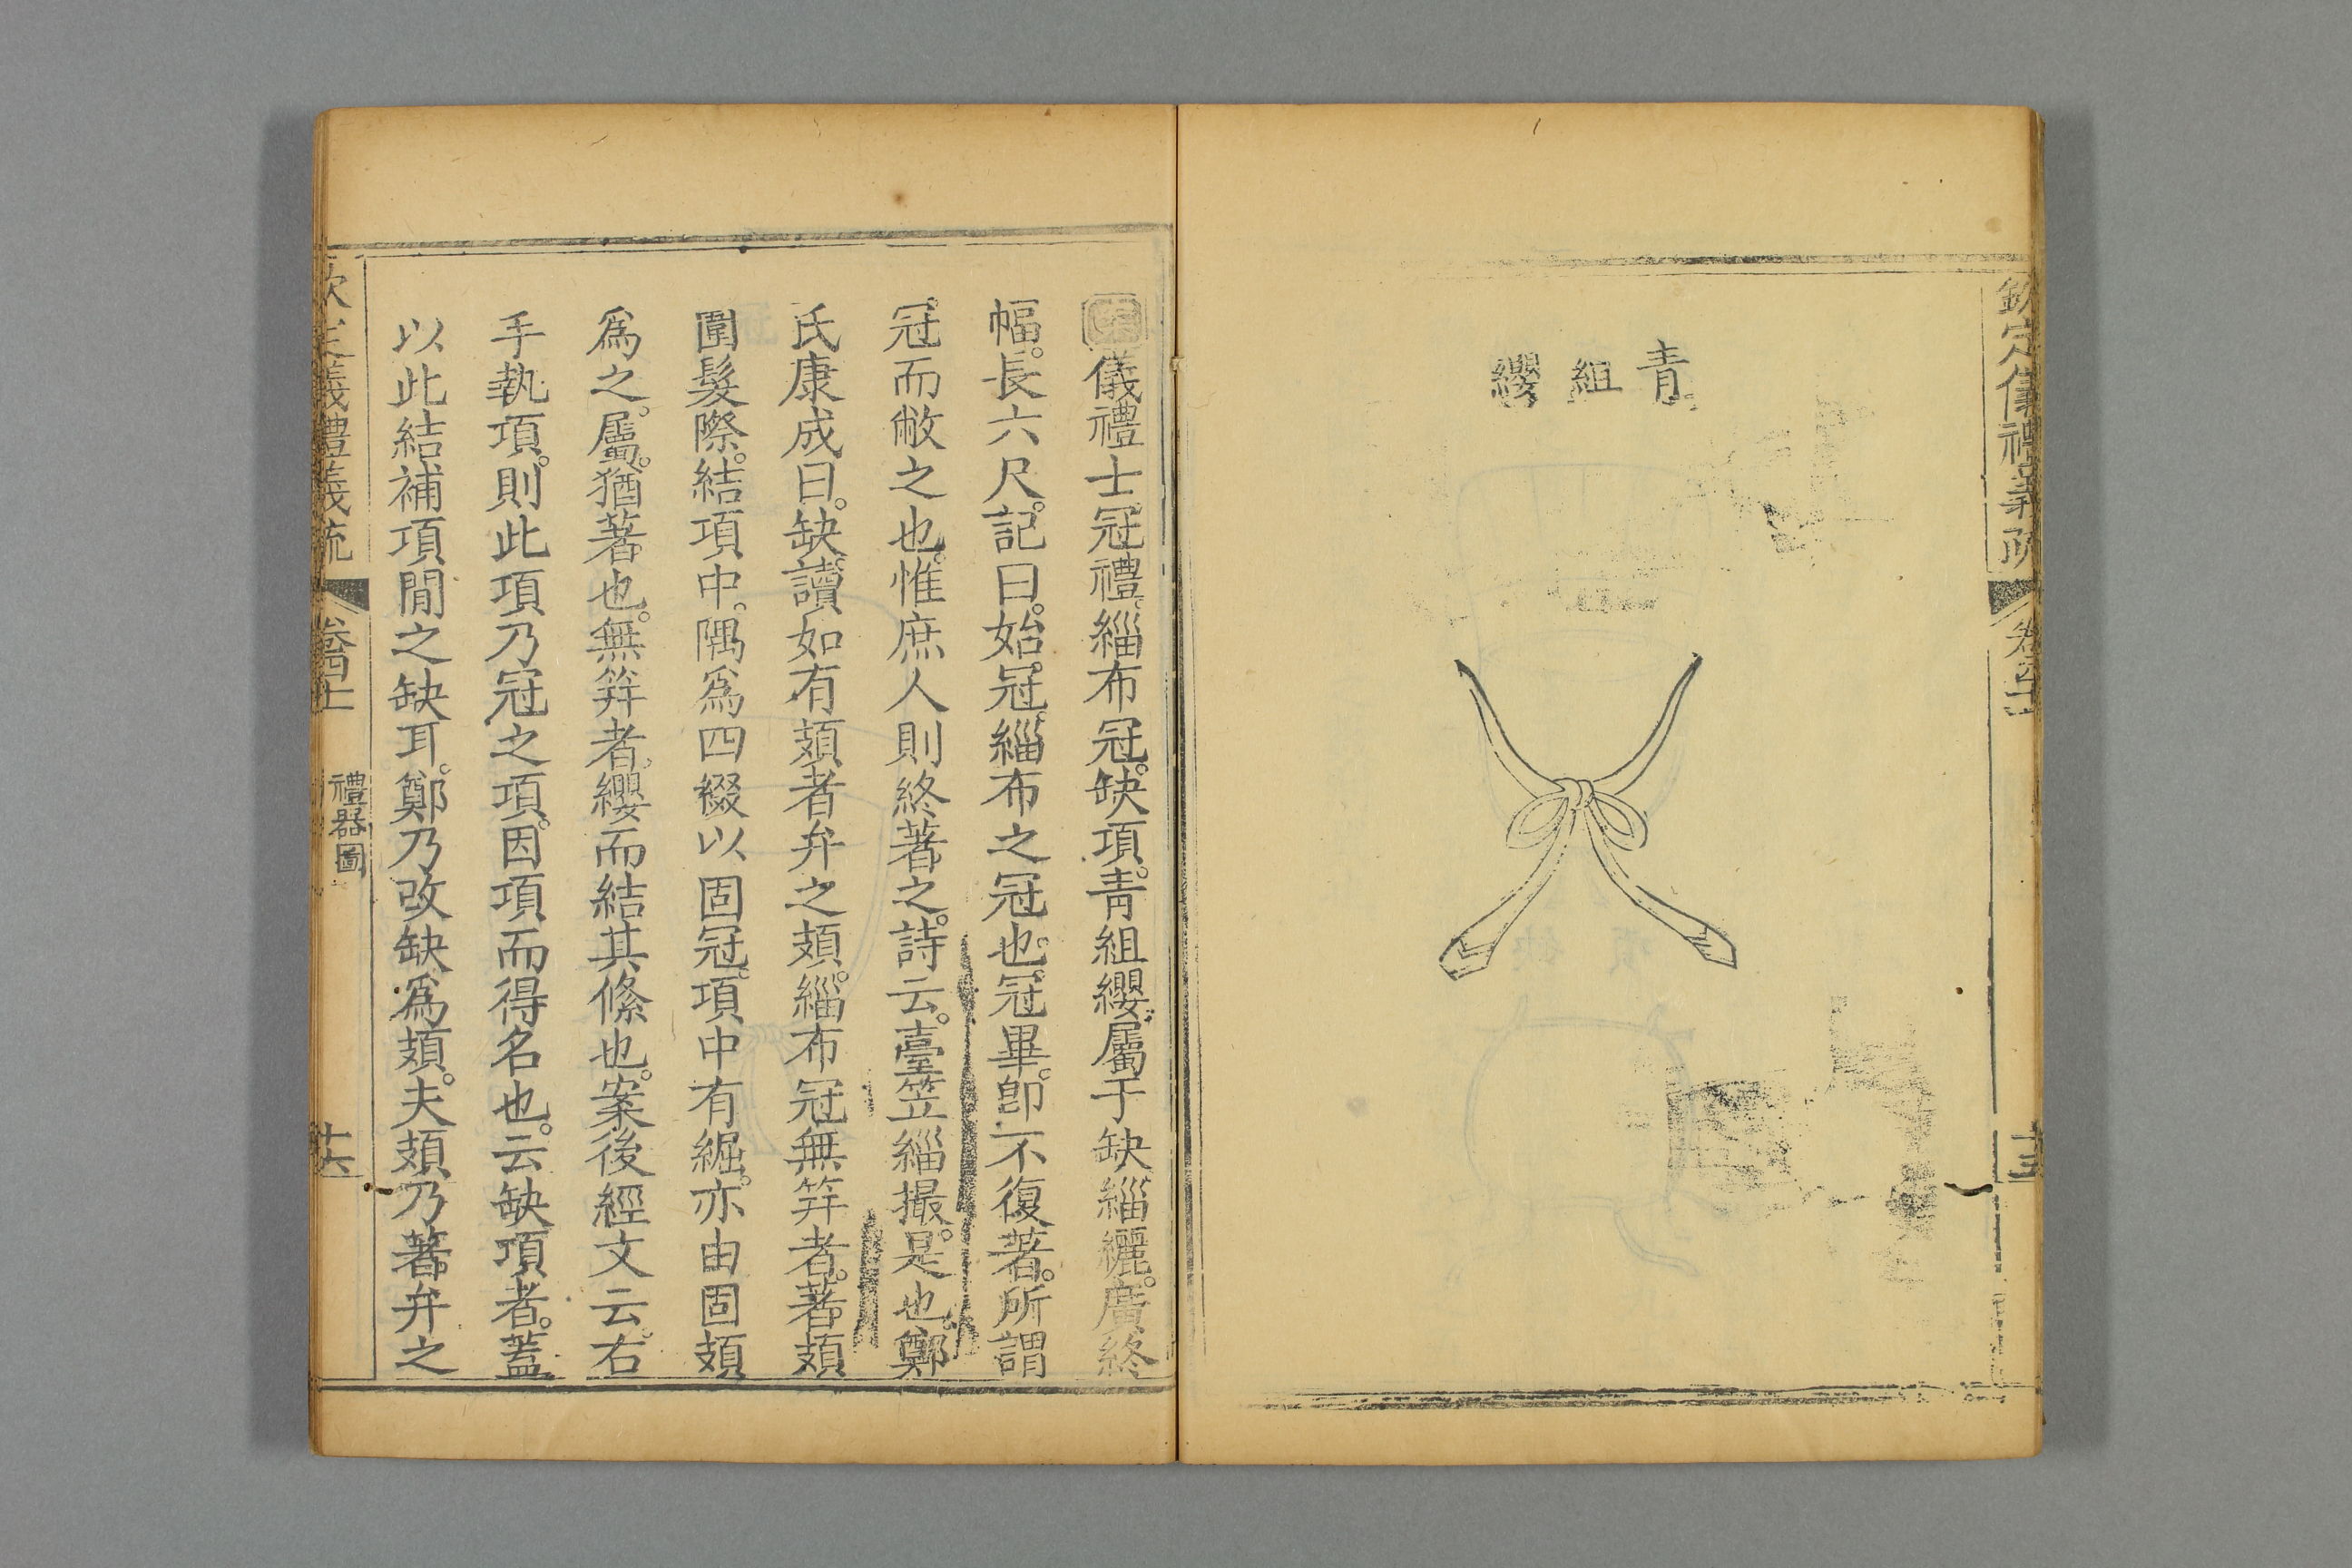 欽定儀禮義疏
青組纓
儀禮士冠禮緇布冠。缺項。青組纓。屬于缺緇纚。廣終
幅。長六尺。記曰。始冠緇布之冠也。冠畢。卽不復著。所謂
冠而敝之也。惟庶人則終著之。詩云。臺笠緇撮。是也。鄭
氏康成曰。缺讀如有頍者弁之頍。緇布冠無笄者。著頍
圍髮際。結項中。隅爲四綴以固冠。項中有䋿。亦由固頍
爲之。屬。猶著也。無笄者。纓而結其絛也。案後經文云。右
手執項。則此項乃冠之項。因項而得名也。云缺項者。蓋
以此結補項閒之缺耳。鄭乃改缺爲頍。夫頍乃著弁之
欽定儀禮義疏
禮器圖